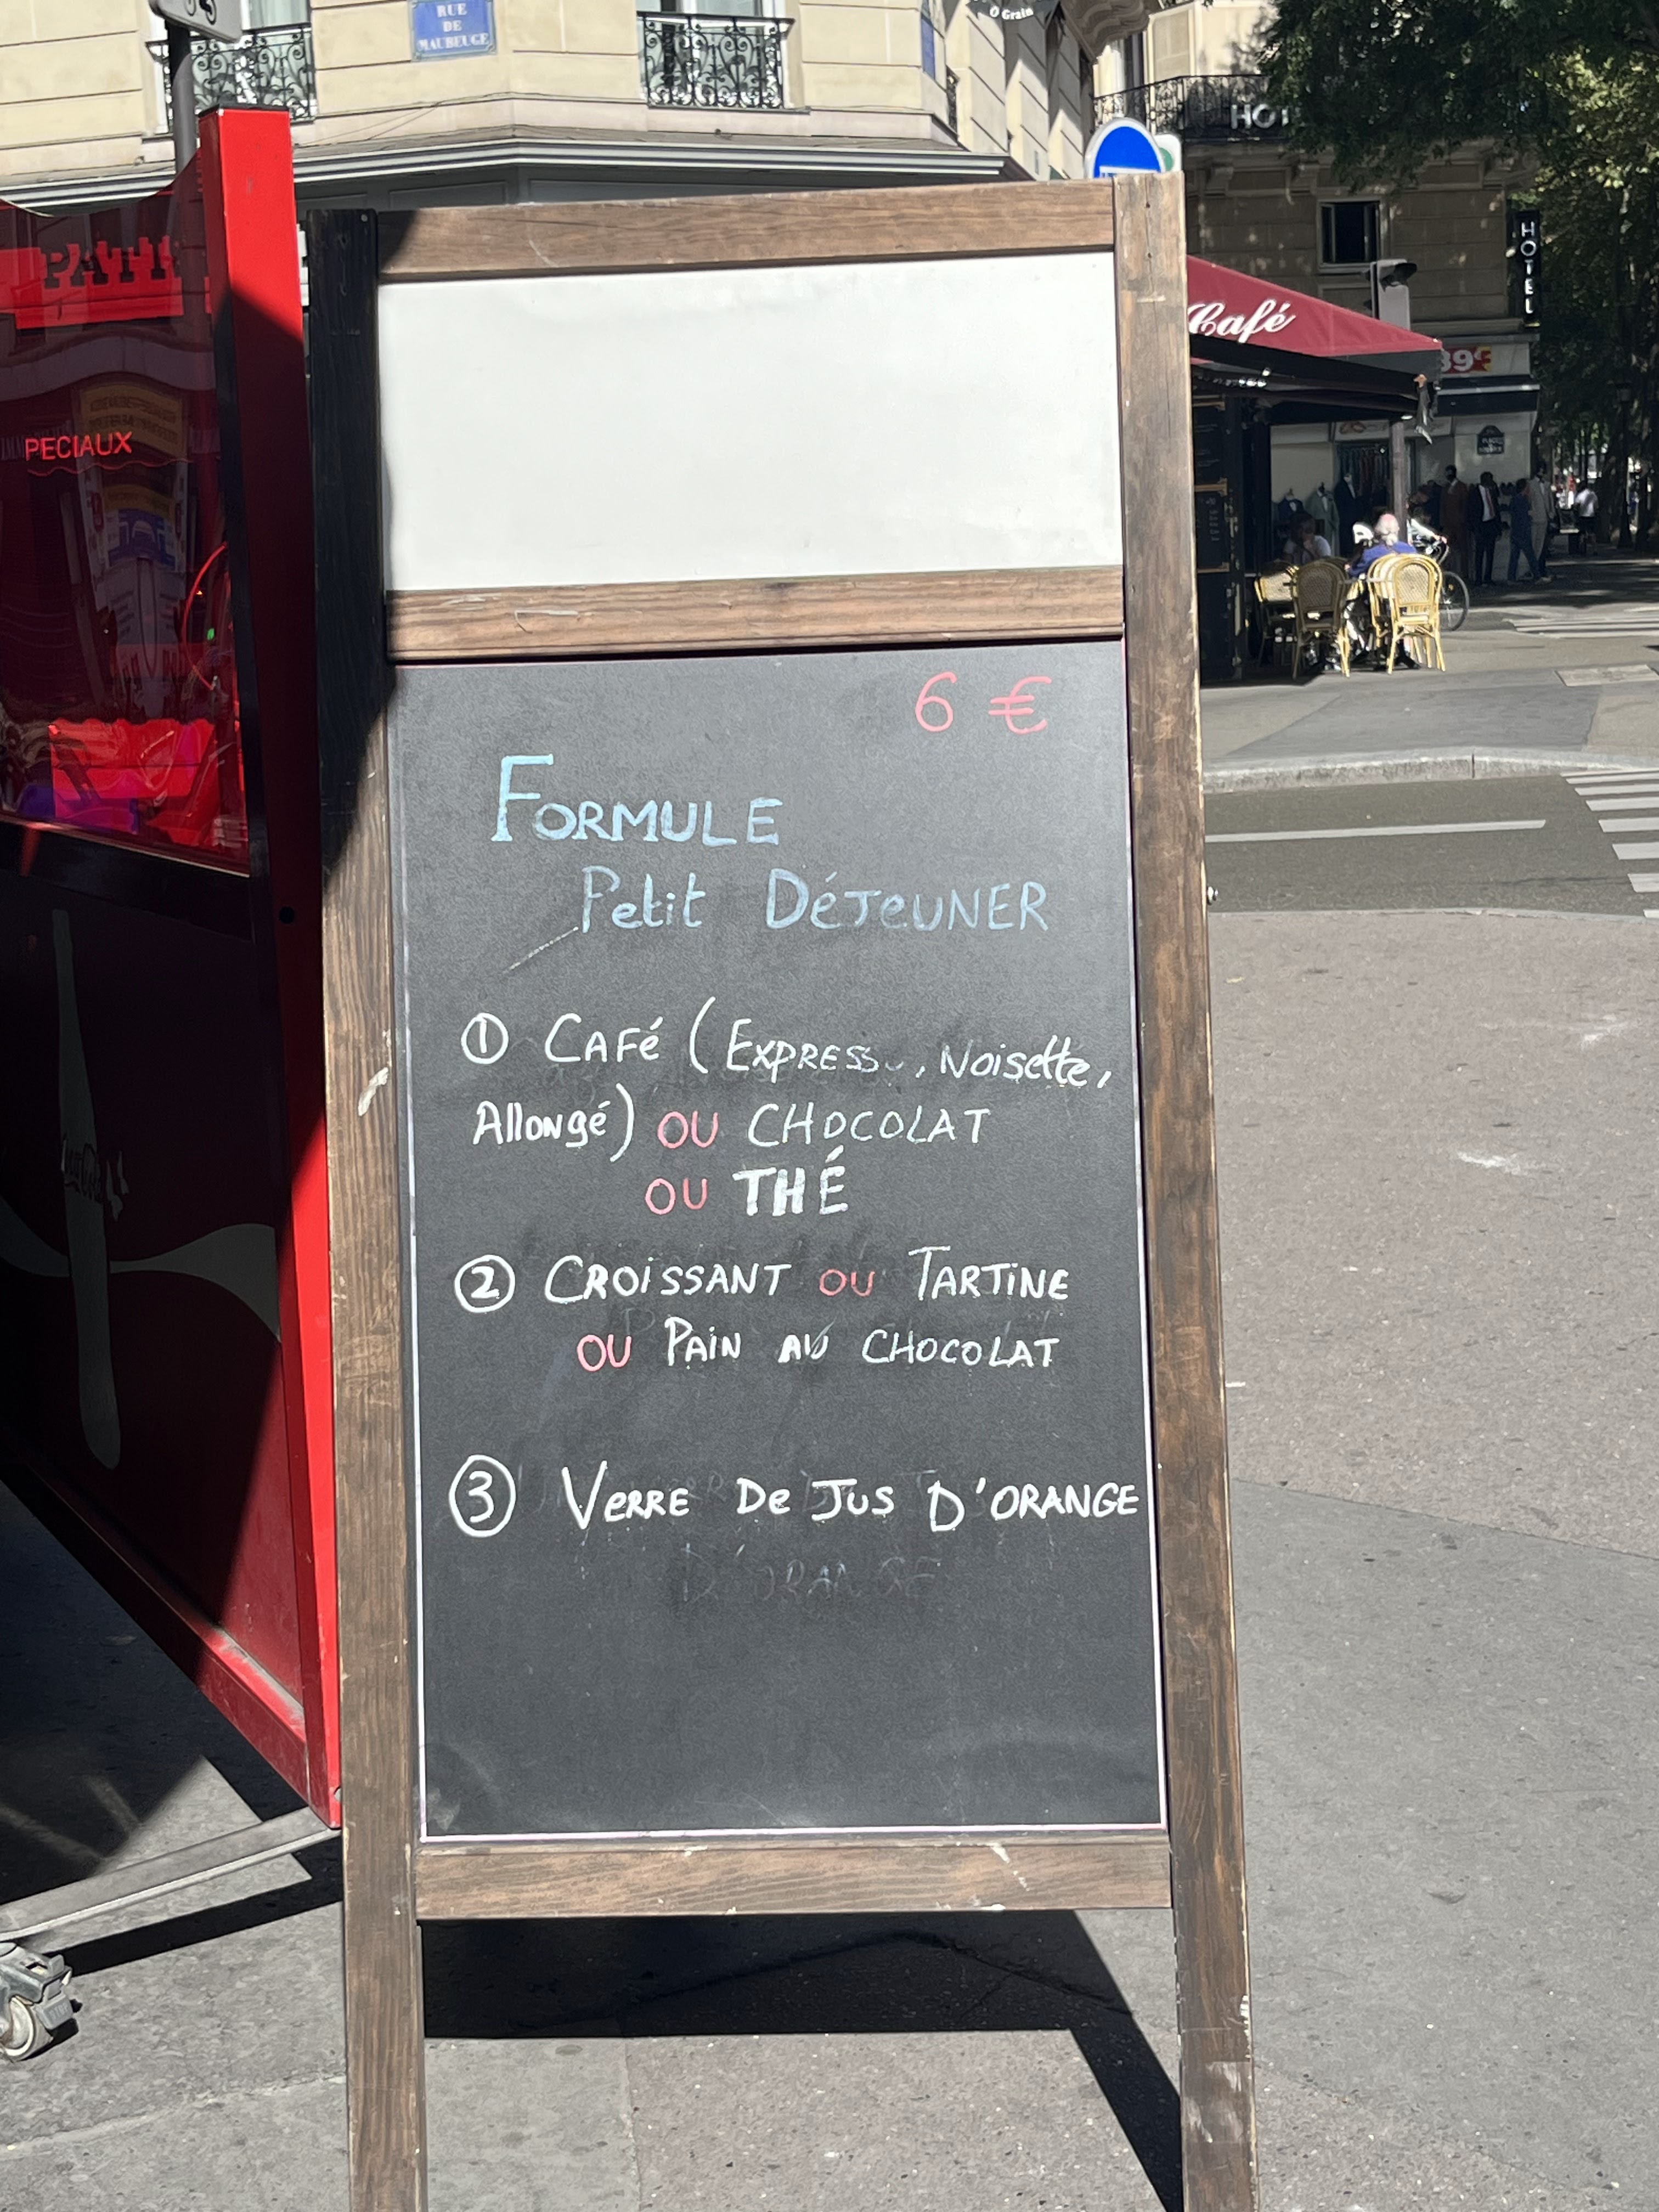 RUE
DE
MAUBEUGE
Ô Grain
HOTEL
Café
PECIAUX
6 €
FORMULE
Petit DéJeUNER
① CAFé (EXPRESS, Noisette,
Allongé) OU CHOCOLAT
OU THÉ
② CROiSSANT OU TARTiNE
OU PAiN AU CHOCOLAT
③ VeRRe De Jus D'ORANGE
D'ORANGE